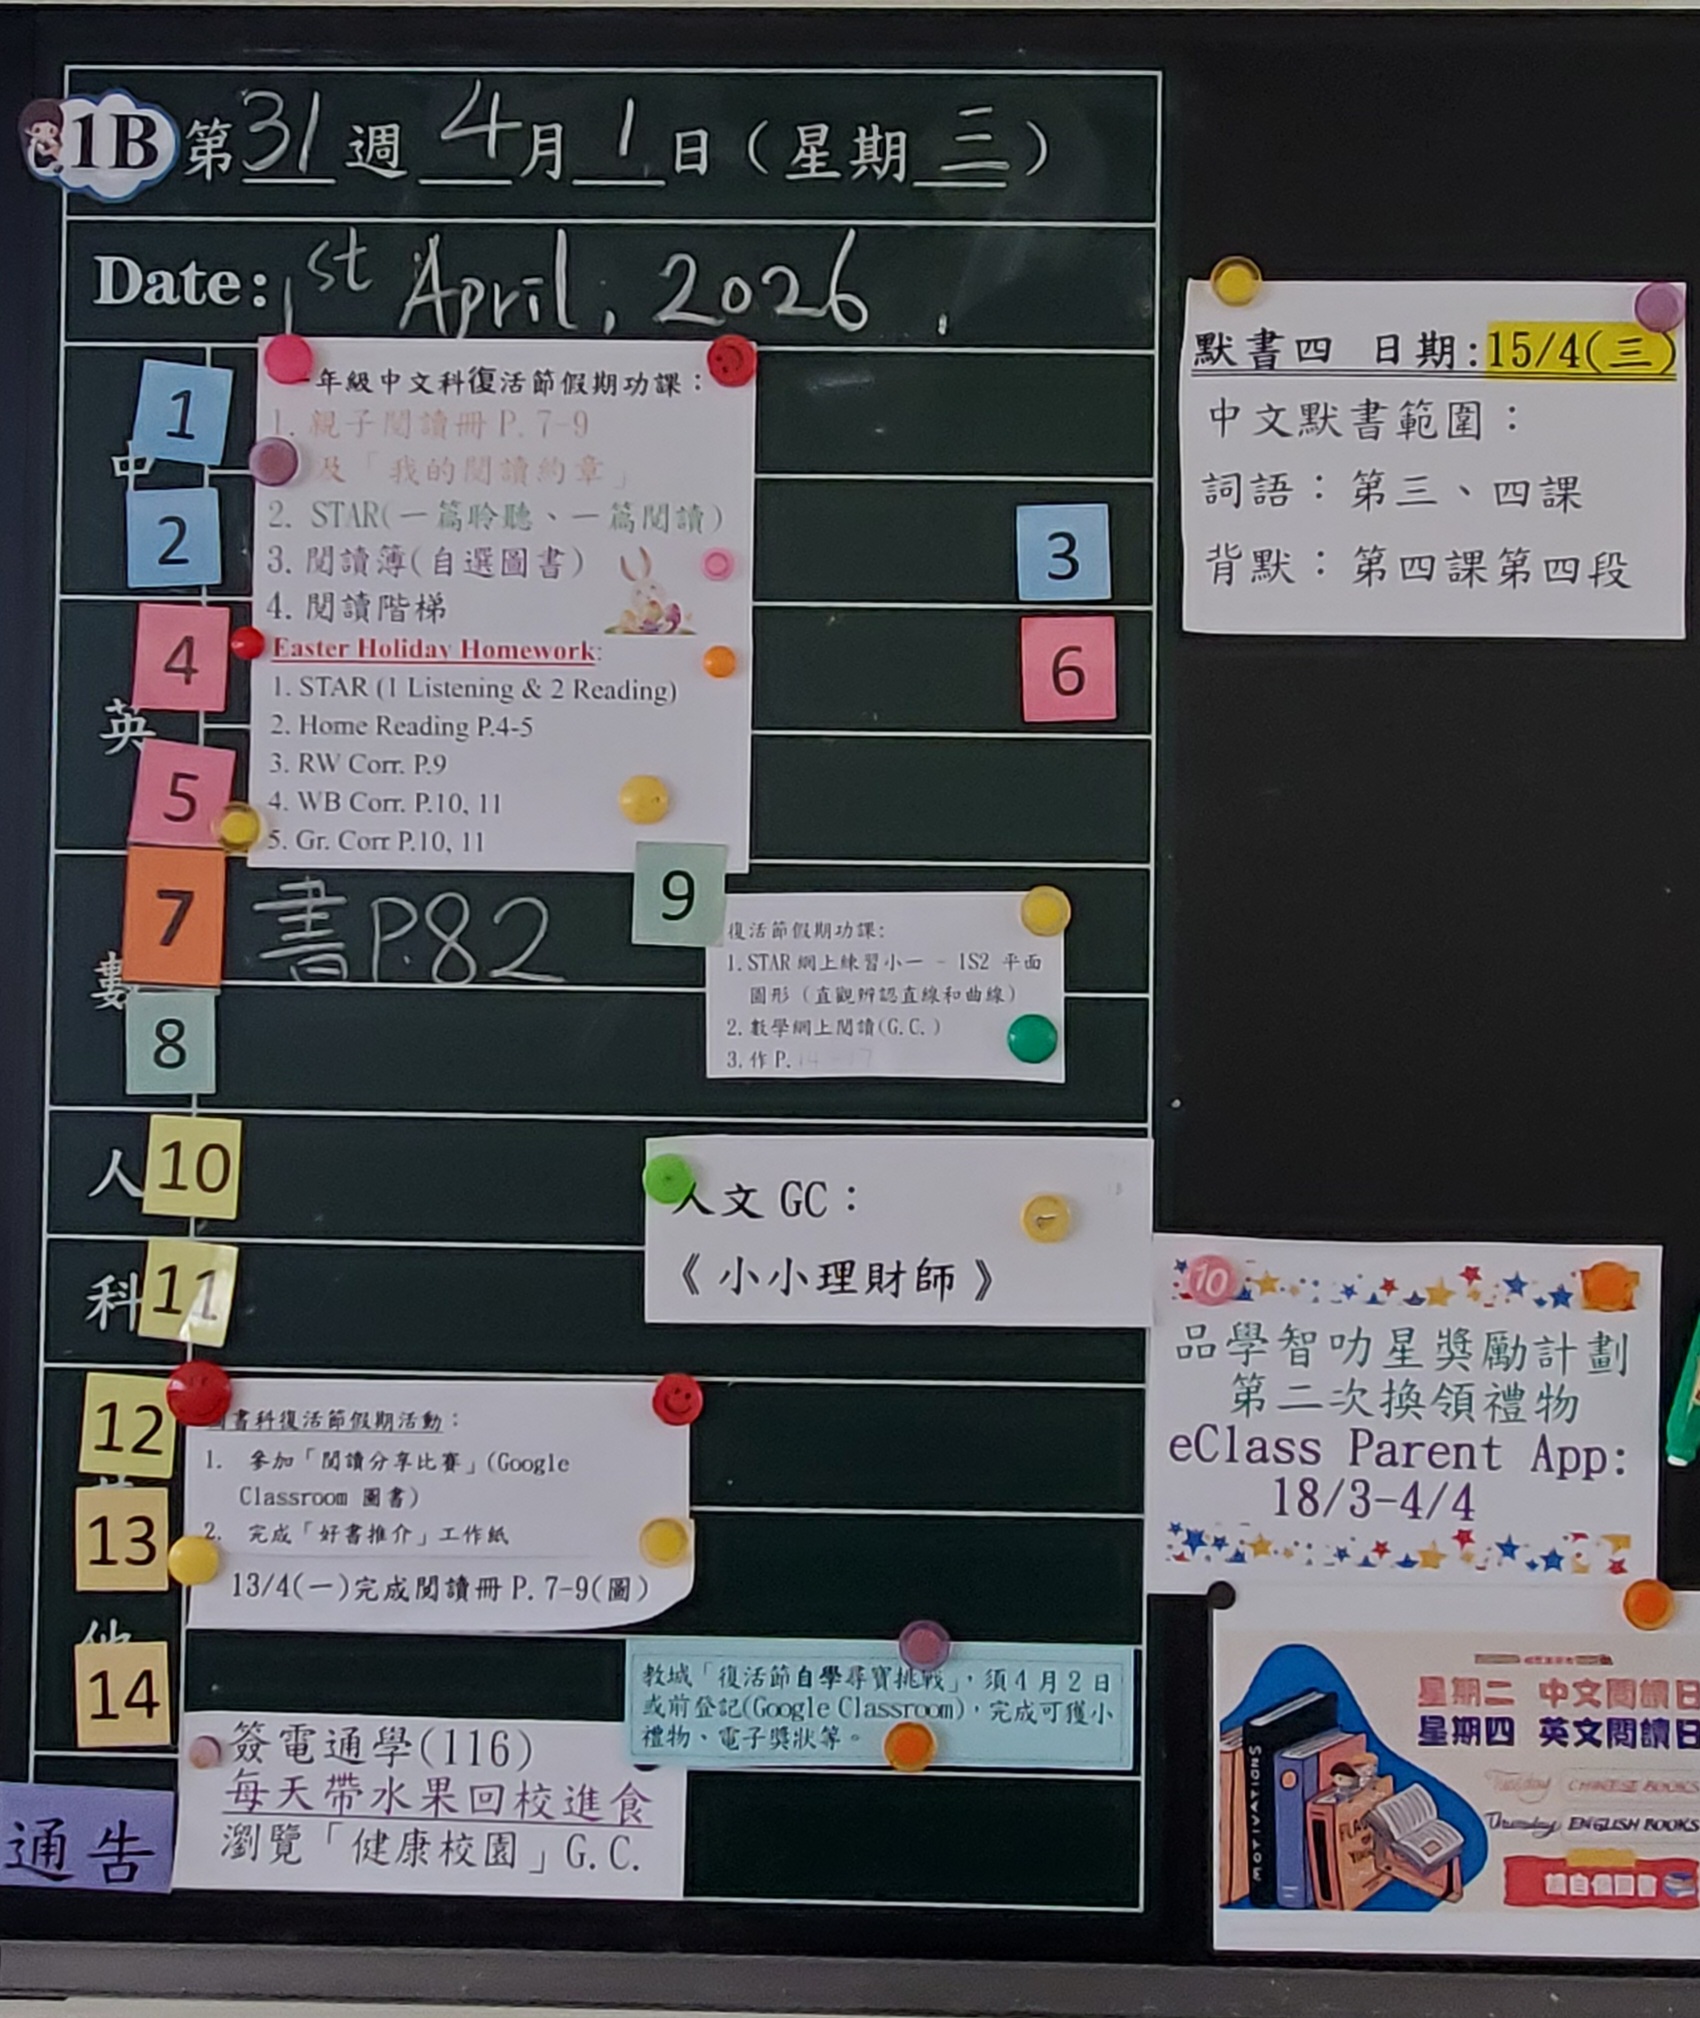 1B 第31週 4月1日（星期三）
Date: 1st April, 2026.
中
1
2
3
年級中文科復活節假期功課：
1. 親子閱讀冊 P. 7-9
及「我的閱讀約章」
2. STAR(一篇聆聽、一篇閱讀)
3. 閱讀簿(自選圖書)
4. 閱讀階梯
英
4
5
6
Easter Holiday Homework:
1. STAR (1 Listening & 2 Reading)
2. Home Reading P.4-5
3. RW Corr. P.9
4. WB Corr. P.10, 11
5. Gr. Corr P.10, 11
數
7
書P.82
8
9
復活節假期功課:
1. STAR 網上練習小一 - 1S2 平面
圖形 (直觀辨認直線和曲線)
2. 數學網上閱讀(G.C.)
3. 作 P.
人
10
人文 GC：
《小小理財師》
科
11
12
13
14
圖書科復活節假期活動：
1. 參加「閱讀分享比賽」(Google
Classroom 圖書)
2. 完成「好書推介」工作紙
13/4(一)完成閱讀冊 P. 7-9(圖)
教城「復活節自學尋寶挑戰」，須 4 月 2 日
或前登記(Google Classroom)，完成可獲小
禮物、電子獎狀等。
通告
簽電通學(116)
每天帶水果回校進食
瀏覽「健康校園」G.C.
默書四 日期:15/4(三)
中文默書範圍：
詞語：第三、四課
背默：第四課第四段
10
品學智叻星獎勵計劃
第二次換領禮物
eClass Parent App:
18/3-4/4
星期二 中文閱讀日
星期四 英文閱讀日
Tuesday CHINESE BOOKS
Thursday ENGLISH BOOKS
MOTIVATIONS